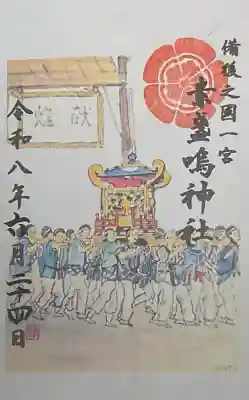 備後之国一宮
素盞嗚神社
献燈
令和八年六月二十四日